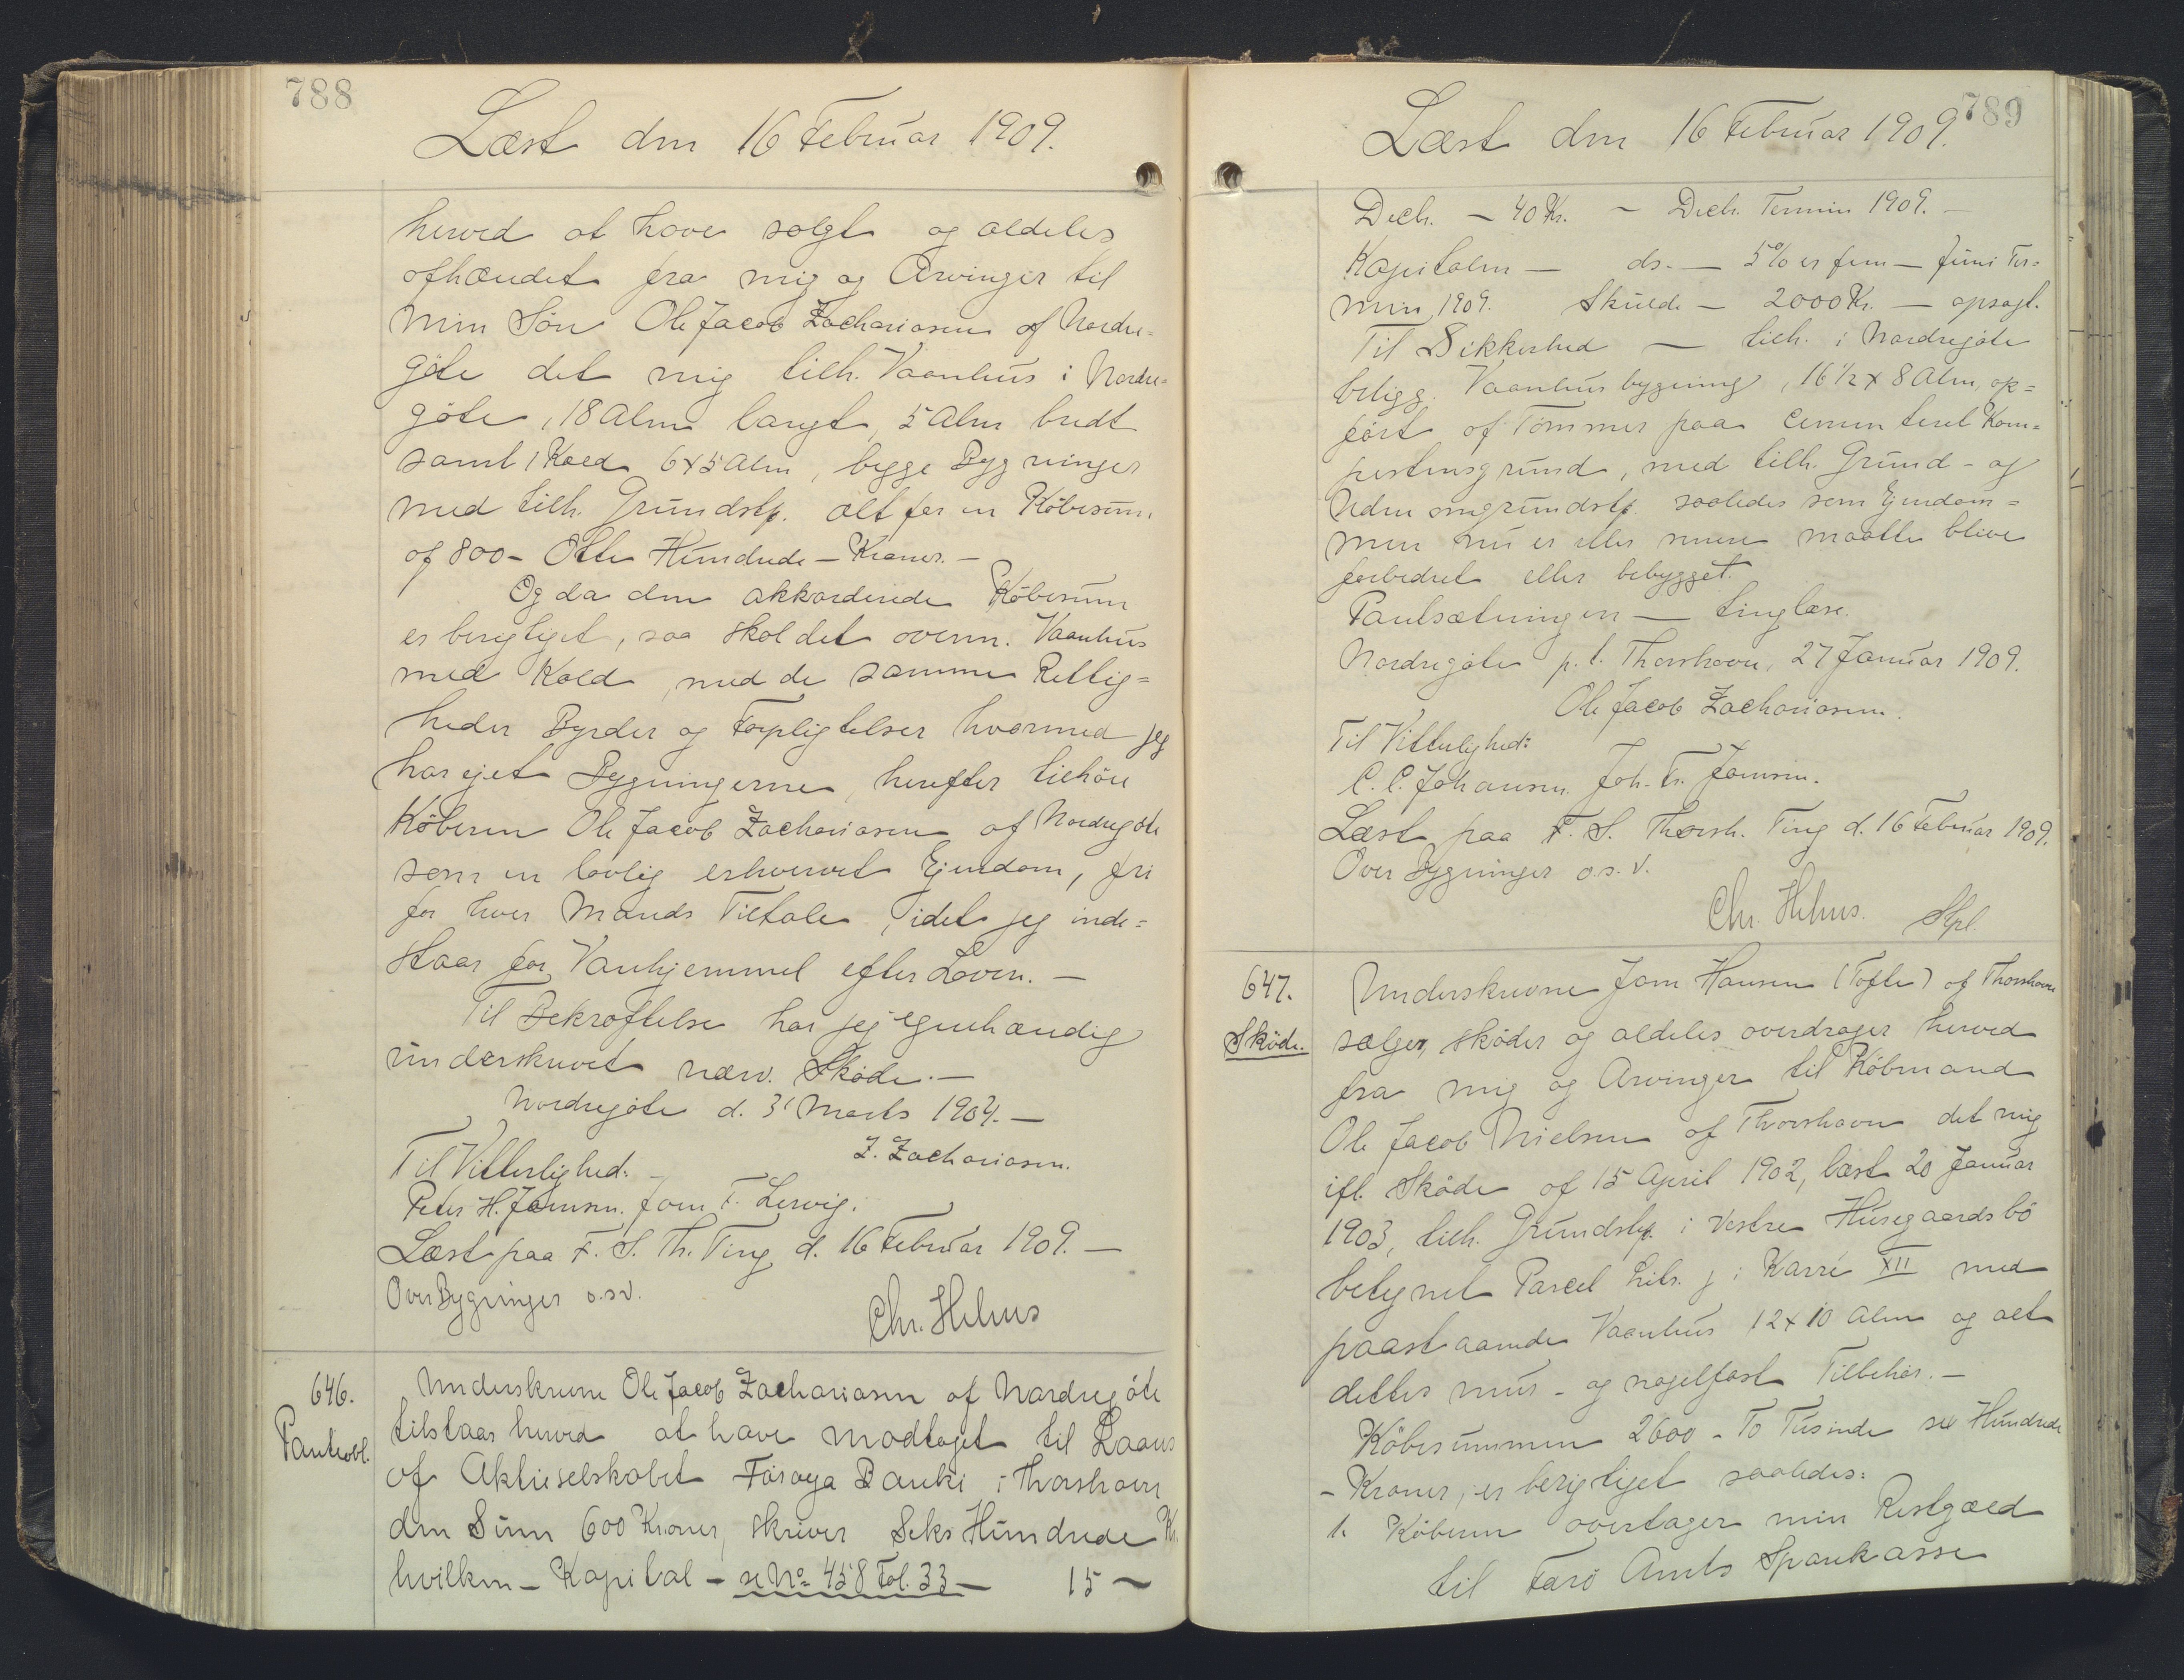 788
Læst den 16 Februar 1909.
herved at have solgt og aldeles
afhændet fra mig og Arvinger til
min Sön Ole Jacob Zachariasen af Nordre-
göte det mig tilh. Vaanhus i Nordre-
göte, 18 Alen langt, 5 Alen bredt
samt 1 Kold 6x5 Alen, begge Bygninger
med tilh. Grundstk. alt for en Köbesum
af 800 - Otte Hundrede - Kroner. -
Og da den akkorderede Köbesum
er berigtiget, saa skal det ovenn. Vaanhus
med Kold, med de samme Rettig=
heder Byrder og Forpligtelser hvormed jeg
har ejet Bygningerne, herefter tilhöre
Köberen Ole Jacob Zachariasen af Nordregöte
som en lovlig erhvervet Ejendom, fri
for hver Mands Tiltale, idet jeg inde=
staar for Vanhjemmel efter Loven. -
Til Bekræftelse har jeg egenhændig
underskrevet nærv. Sköde. -
Nordregöte d. 31 Marts 1904. -
Z. Zachariasen.
Til Vitterlighed: -
Peter H. Joensen. Joen F. Lervig.
Læst paa F. S. Th. Ting d. 16 Februar 1909. -
Over Bygninger o.s.v.
Chr. Helms
646.
Panteobl.
Underskrevne Ole Jacob Zachariasen af Nordregöte
tilstaar herved at have modtaget til Laans
af Aktieselskabet Föroya Banki i Thorshavn
den Sum 600 Kroner, skriver Seks Hundrede Kr.
hvilken - Kapital - se No 458 Fol. 33 - 15 ~
789
Læst den 16 Februar 1909.
Decb. - 40 Kr. - Decb. Termin 1909. -
Kapitalen - ds. - 5% er fem - Juni Ter=
min 1909. Skulde - 2000 Kr. - opsagt.
Til Sikkerhed - tilh. i Nordregöte
beligg. Vaanhusbygning, 16 1/2 x 8 Alen, op=
fört af Tömmer paa cementeret Kam=
pestensgrund, med tilh. Grund- og
Udenomgrundstk. saaledes som Ejendom=
men nu er eller mere maatte blive
forbedret eller bebygget.
Pantsætningen - tinglæse.
Nordregöte p. t. Thorshavn, 27 Januar 1909.
Ole Jacob Zachariasen.
Til Vitterlighed:
C. C. Johansen. Joh. Fr. Joensen.
Læst paa F. S. Thorsh. Ting d. 16 Februar 1909.
Over Bygninger o.s.v.
Chr. Helms. Stpl.
647.
Sköde.
Underskrevne Joen Hansen (Tofte) af Thorshavn
sælger, sköder og aldeles overdrager herved
fra mig og Arvinger til Köbmand
Ole Jacob Nielsen af Thorshavn det mig
ifl. Sköde af 15 April 1902, læst 20 Januar
1903, tilh. Grundstk. i Vestre Husegaardsbö
betegnet Parcel Litr. j i Karré XII med
paastaaende Vaanhus 12x10 Alen og alt
dettes mur- og nagelfast Tilbehör. -
Köbesummen 2600 - To Tusinde sex Hundrede
- Kroner, er berigtiget saaledes:
1. Köberen overtager min Restgæld
til Farö Amts Sparekasse